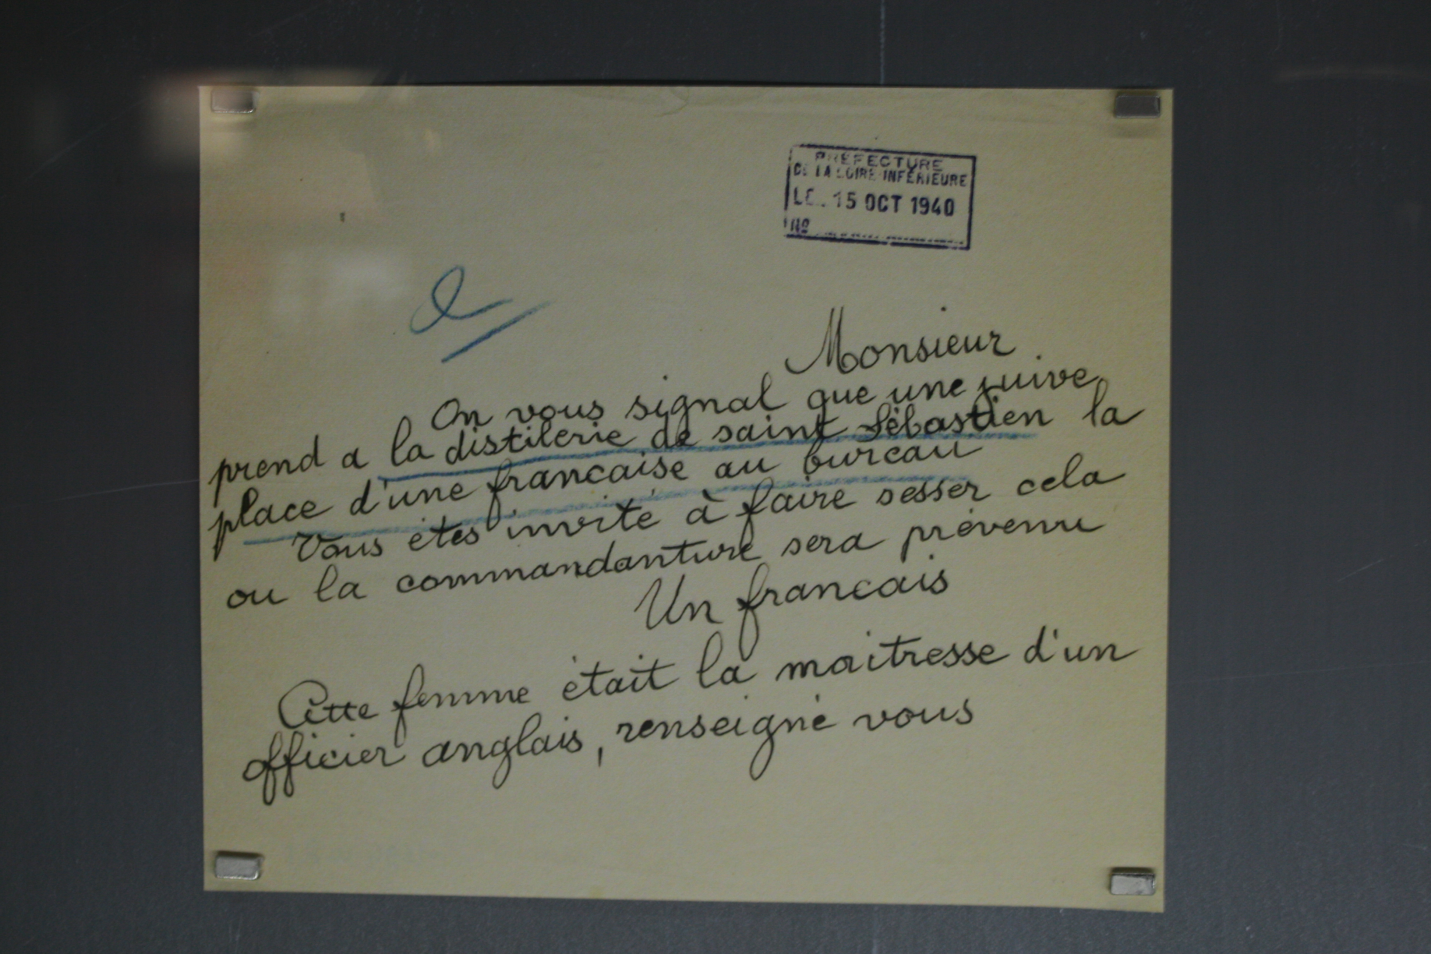 PREFECTURE
DE LA LOIRE INFÉRIEURE
LE 15 OCT 1940
No
Monsieur
On vous signal que une juive
prend a la distilerie de saint Sébastien la
place d'une francaise au bureau
Vous êtes invité à faire sesser cela
ou la commandanture sera prévenu
Un francais
Cette femme était la maitresse d'un
officier anglais, renseigné vous